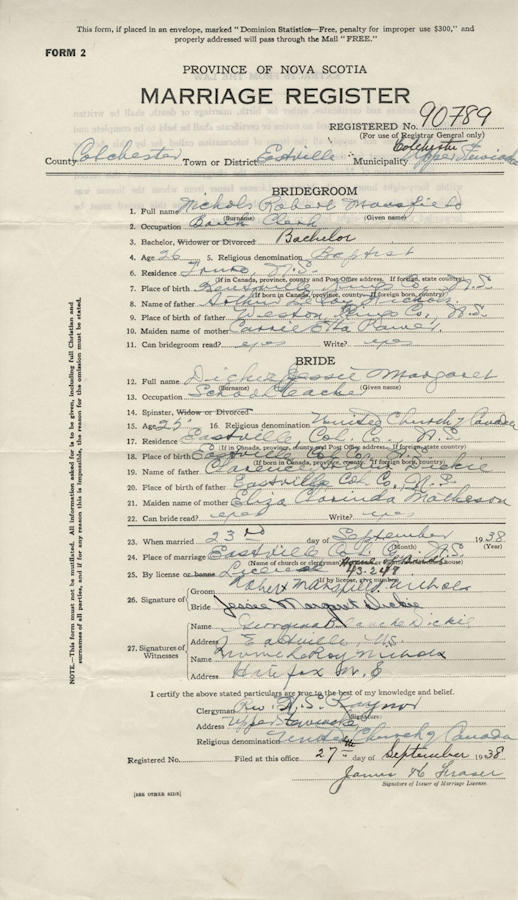 This form, if placed in an envelope, marked "Dominion Statistics—Free, penalty for improper use $300," and
properly addressed will pass through the Mail "FREE."
FORM 2
PROVINCE OF NOVA SCOTIA
MARRIAGE REGISTER
REGISTERED No. 90789
(For use of Registrar General only)
Colchester
County Colchester Town or District Eastville Municipality Upper Stewiacke
BRIDEGROOM
1. Full name Nichols Robert Mansfield
(Surname) (Given name)
2. Occupation Bank Clerk
3. Bachelor, Widower or Divorced Bachelor
4. Age 26 5. Religious denomination Baptist
6. Residence Truro, N.S.
(If in Canada, province, county and Post Office address. If foreign, state country)
7. Place of birth Kentville, Kings Co., N.S.
(If born in Canada, province, county. If foreign born, country)
8. Name of father Nichols
9. Place of birth of father Weston, Kings Co., N.S.
10. Maiden name of mother Carrie Etta
11. Can bridegroom read? yes Write? yes
BRIDE
12. Full name Dickie Jessie Margaret
(Surname) (Given name)
13. Occupation School teacher
14. Spinster, Widow or Divorced
15. Age 25 16. Religious denomination United Church of Canada
17. Residence Eastville, Col. Co. N.S.
(If in Canada, province, county and Post Office address. If foreign, state country)
18. Place of birth Eastville Col. Co. N.S.
(If born in Canada, province, county. If foreign born, country)
19. Name of father Clarence Dickie
20. Place of birth of father Eastville Col. Co., N.S.
21. Maiden name of mother Eliza Clarinda Matheson
22. Can bride read? yes Write? yes
23. When married 23rd day of September 1938
(Month) (Year)
24. Place of marriage Eastville Col. Co. N.S.
(Name of church or clergyman's house) Home of Bride
25. By license or banns License 43-248
(If by license, give number)
26. Signature of Groom Robert Mansfield Nichols
Bride Jessie Margaret Dickie
27. Signatures of Witnesses
Name Georgina Dickie
Address Eastville N.S.
Name Nichols
Address Halifax N.S.
I certify the above stated particulars are true to the best of my knowledge and belief.
Clergyman Rev. Raynor
(Signature)
Address Upper Stewiacke
Religious denomination United Church of Canada
Registered No. Filed at this office 27th day of September 1938
James H Fraser
Signature of Issuer of Marriage License.
[SEE OTHER SIDE]
NOTE.—This form must not be mutilated. All information asked for is to be given, including full Christian and
surnames of all parties, and if for any reason this is impossible, the reason for the omission must be stated.